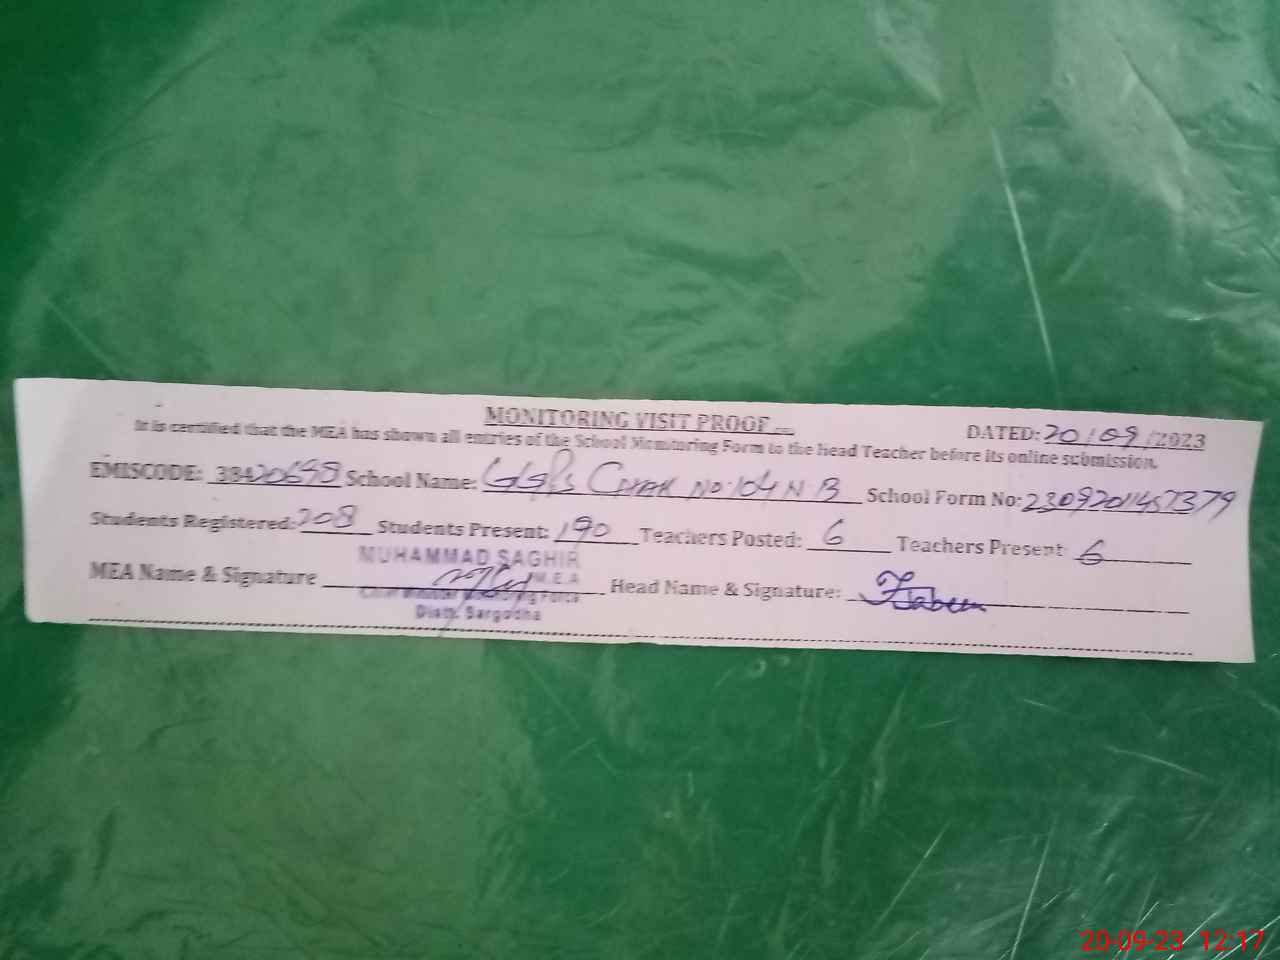 MONITORING VISIT PROOF
DATED: 20/09/2023
It is certified that the MEA has shown all entries of the School Monitoring Form to the Head Teacher before its online submission.
EMISCODE: 38420698 School Name: GGPS CHAK NO. 104 N B School Form No: 23092011457379
Students Registered: 208 Students Present: 190 Teachers Posted: 6 Teachers Present: 6
MUHAMMAD SAGHIR
MEA Name & Signature M.E.A Head Name & Signature:
Chief Minister Monitoring Force
Distt. Sargodha
20-09-23 12:17